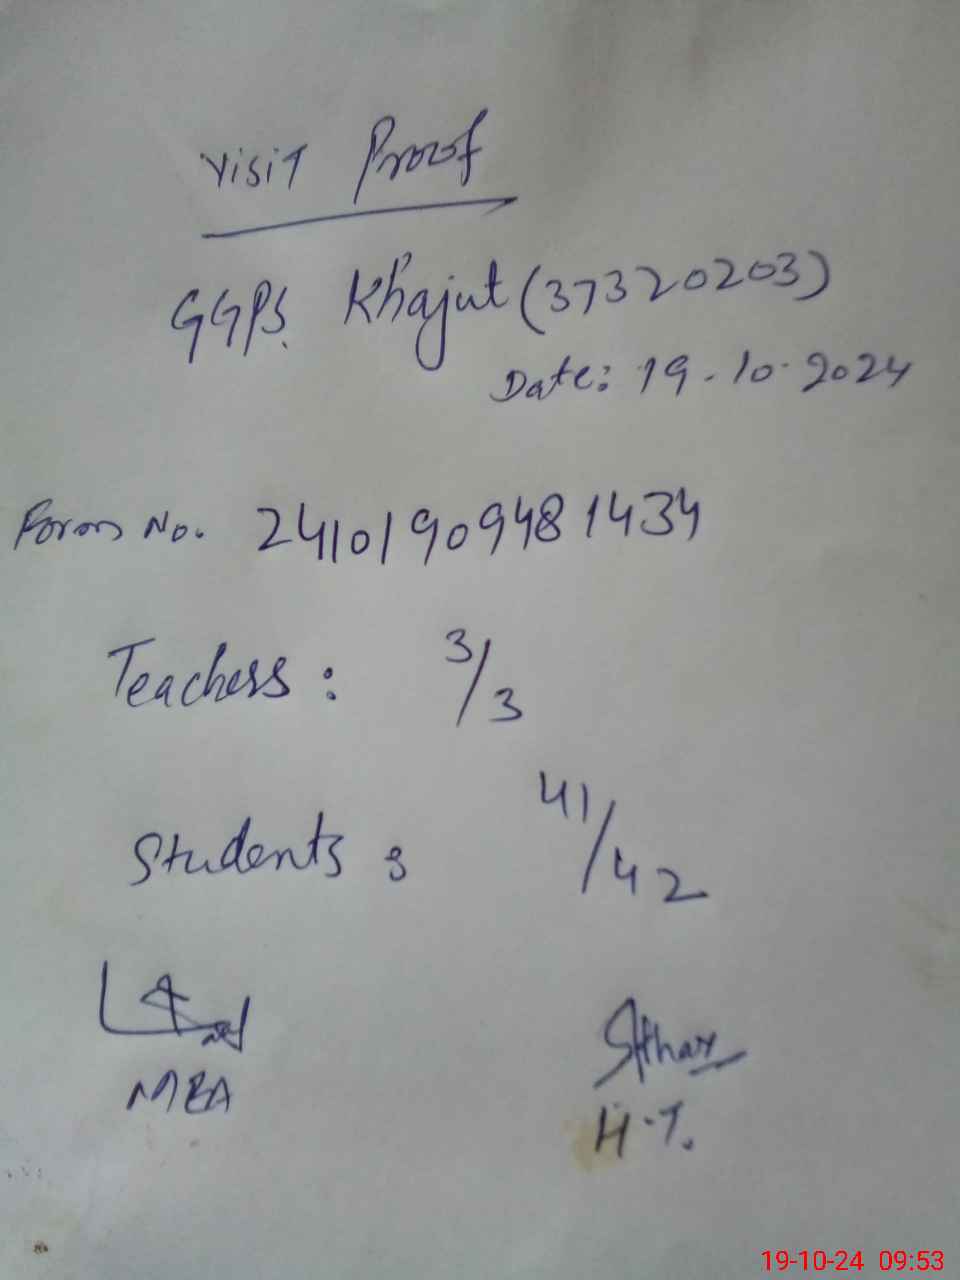 Visit Proof
GGPS Khajut (37320203)
Date: 19-10-2024
Form No. 24101909481434
Teachers : 3/3
Students : 41/42
MEA
H.T.
19-10-24 09:53